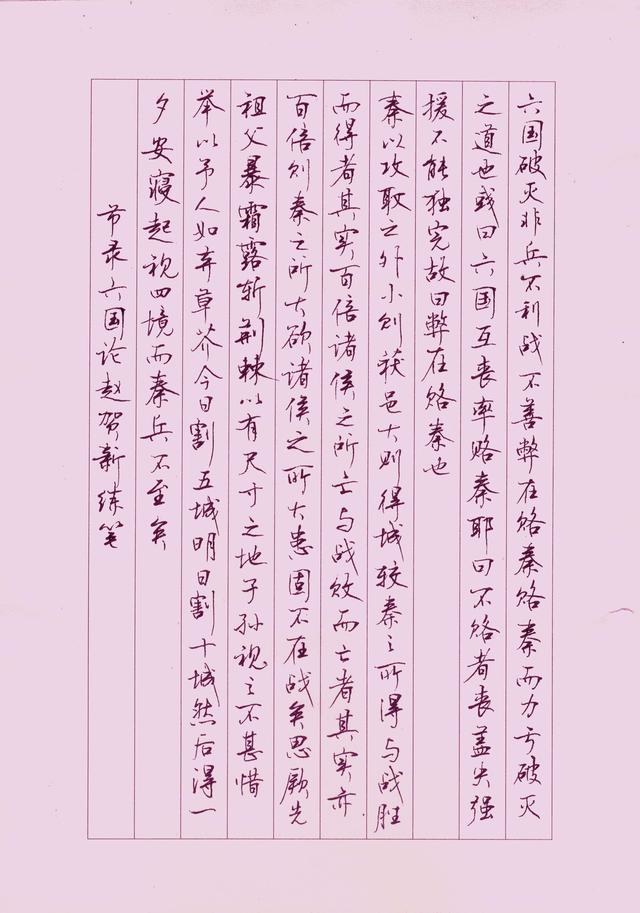 六国破灭非兵不利战不善弊在赂秦赂秦而力亏破灭
之道也或曰六国互丧率赂秦耶曰不赂者丧盖失强
援不能独完故曰弊在赂秦也
秦以攻取之外小则获邑大则得城较秦之所得与战胜
而得者其实百倍诸侯之所亡与战败而亡者其实亦
百倍则秦之所大欲诸侯之所大患固不在战矣思厥先
祖父暴霜露斩荆棘以有尺寸之地子孙视之不甚惜
举以予人如弃草芥今日割五城明日割十城然后得一
夕安寝起视四境而秦兵不至矣
节录六国论赵贺新练笔